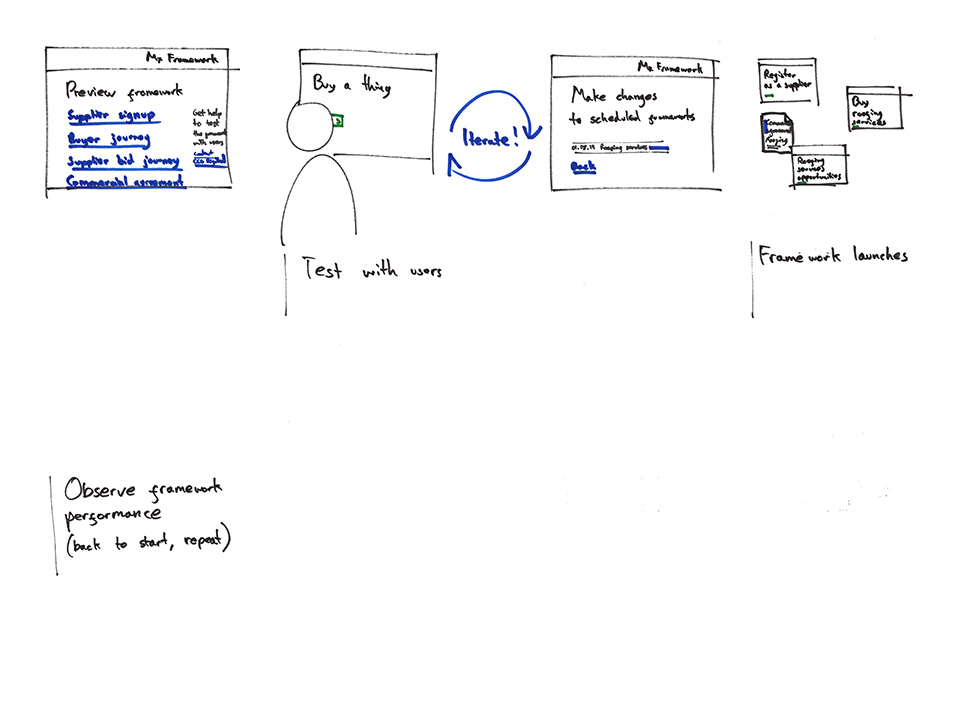 Mx Framework
Preview framework
Supplier signup
Buyer journey
Supplier bid journey
Commercial agreement
Get help
to test
the
with users
Contact
CCS Digital
Buy a thing
Iterate!
Mx Framework
Make changes
to scheduled frameworks
Roofing services
Back
Register
as a supplier
Buy
roofing
services
Roofing
Roofing
services
opportunities
Test with users
Framework launches
Observe framework
performance
(back to start, repeat)